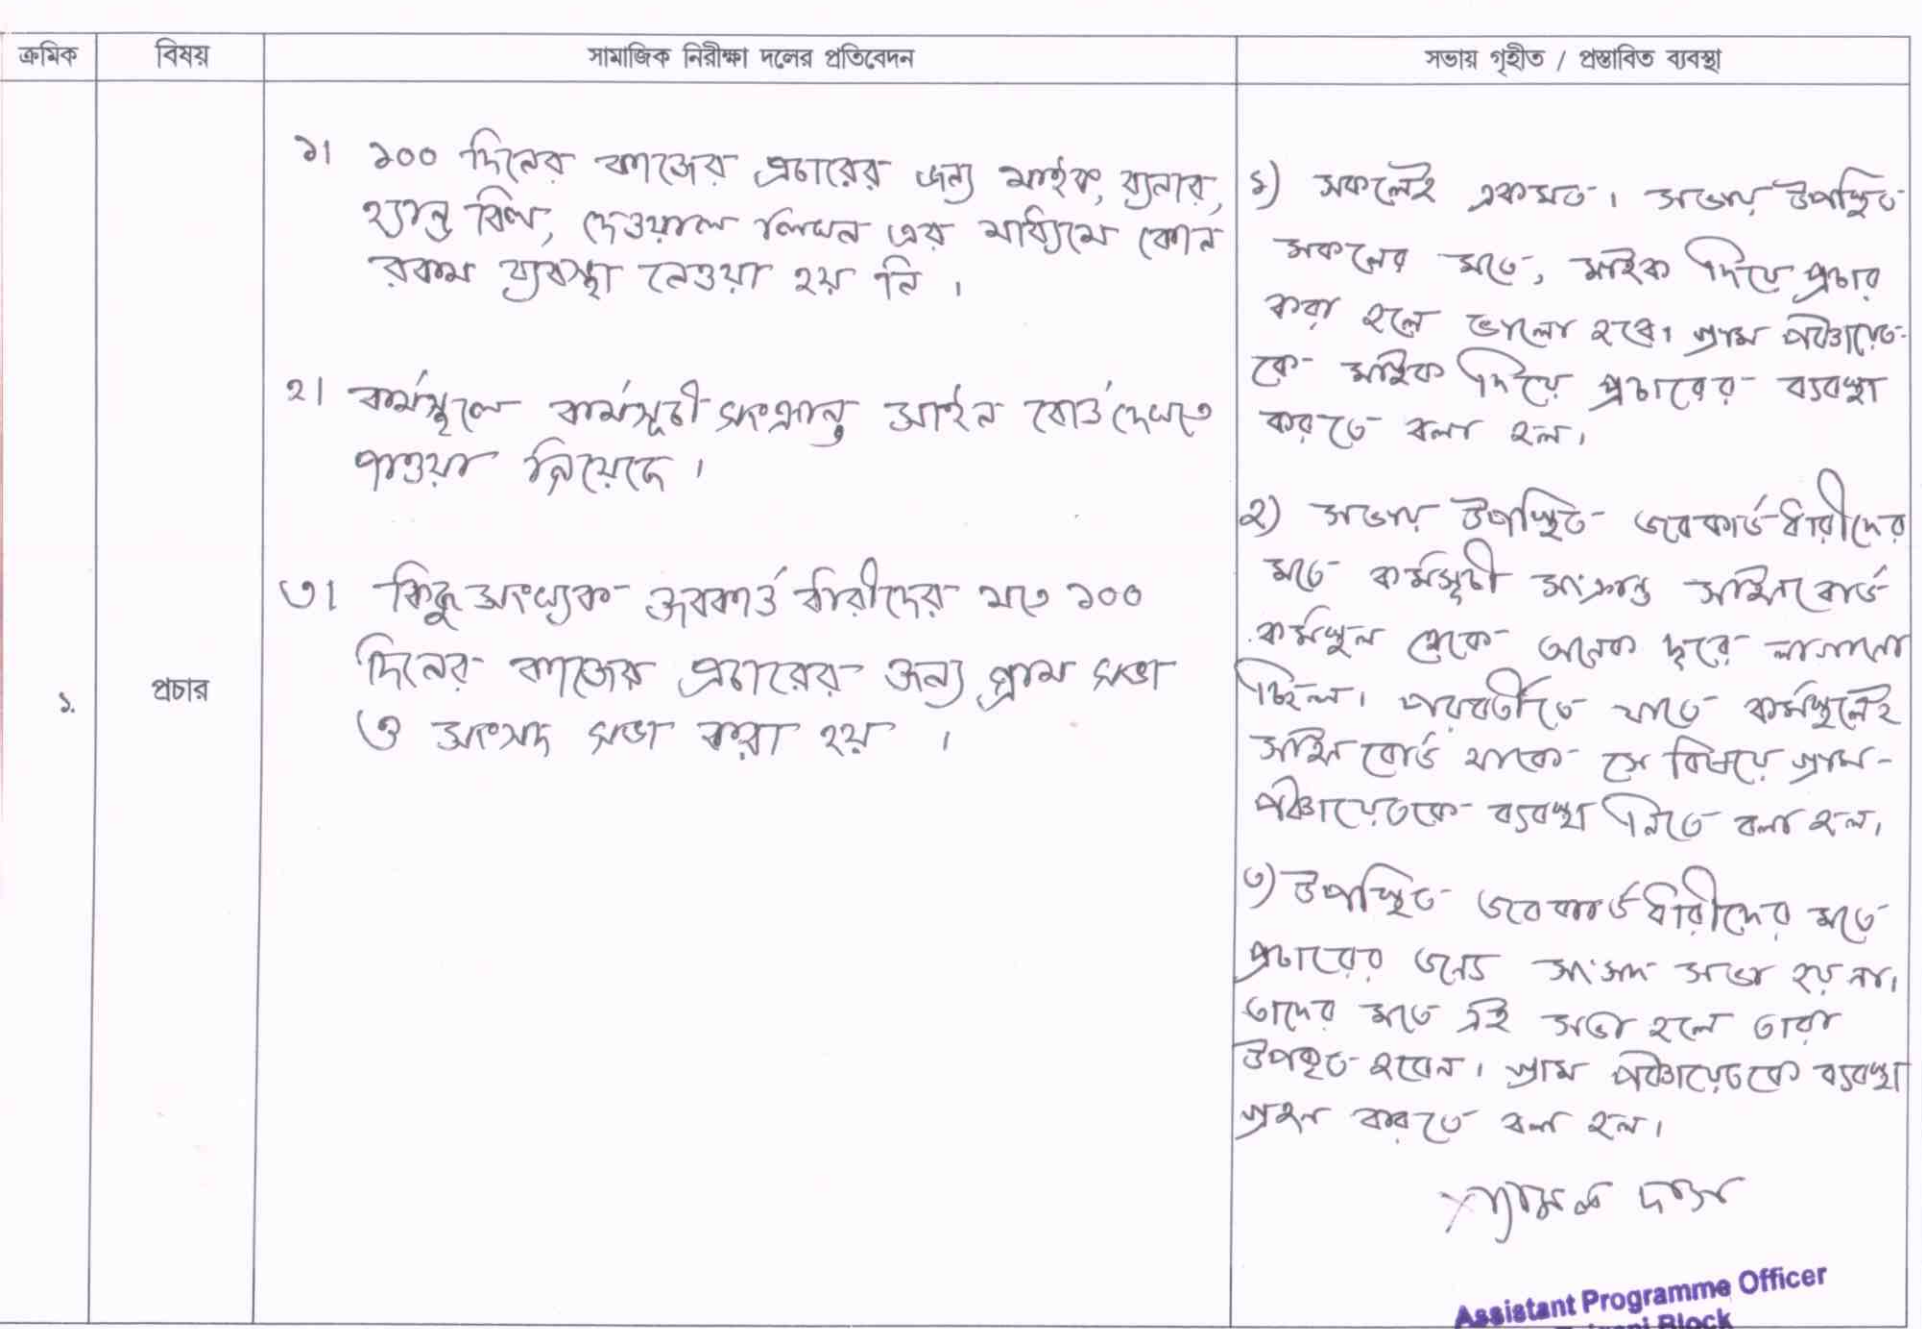 ক্রমিক
বিষয়
সামাজিক নিরীক্ষা দলের প্রতিবেদন
সভায় গৃহীত / প্রস্তাবিত ব্যবস্থা
১.
প্রচার
১। ১০০ দিনের কাজের প্রচারের জন্য মাইক, ব্যনার,
হ্যান্ড বিল, দেওয়াল লিখন এর মাধ্যিমে কোন
রকম ব্যবস্থা নেওয়া হয় নি ।
২। কার্মস্থলে কার্মসূচী সংক্রান্ত সাইন বোর্ড দেখতে
পাওয়া গিয়েছে ।
৩। কিছু সংখ্যক জবকার্ড ধারীদের মতে ১০০
দিনের কাজের প্রচারের জন্য গ্রাম সভা
ও সংসদ সভা করা হয় ।
১) সকলেই একমত। সভায় উপস্থিত
সকলের মতে, মাইক দিয়ে প্রচার
করা হলে ভালো হবে। গ্রাম পঞ্চায়েত-
কে মাইক দিয়ে প্রচারের ব্যবস্থা
করতে বলা হল।
২) সভায় উপস্থিত জবকার্ড ধারীদের
মতে কর্মসূচী সংক্রান্ত সাইনবোর্ড
কর্মস্থল থেকে অনেক দূরে লাগানো
ছিল। পরবর্তীতে যাতে কর্মস্থলেই
সাইন বোর্ড থাকে সে বিষয়ে গ্রাম-
পঞ্চায়েতকে ব্যবস্থা নিতে বলা হল।
৩) উপস্থিত জবকার্ড ধারীদের মতে
প্রচারের জন্যে সংসদ সভা হয় না।
তাদের মতে এই সভা হলে তারা
উপকৃত হবেন। গ্রাম পঞ্চায়েতকে ব্যবস্থা
গ্রহন করতে বলা হল।
শ্যামল দাস
Assistant Programme Officer
Block